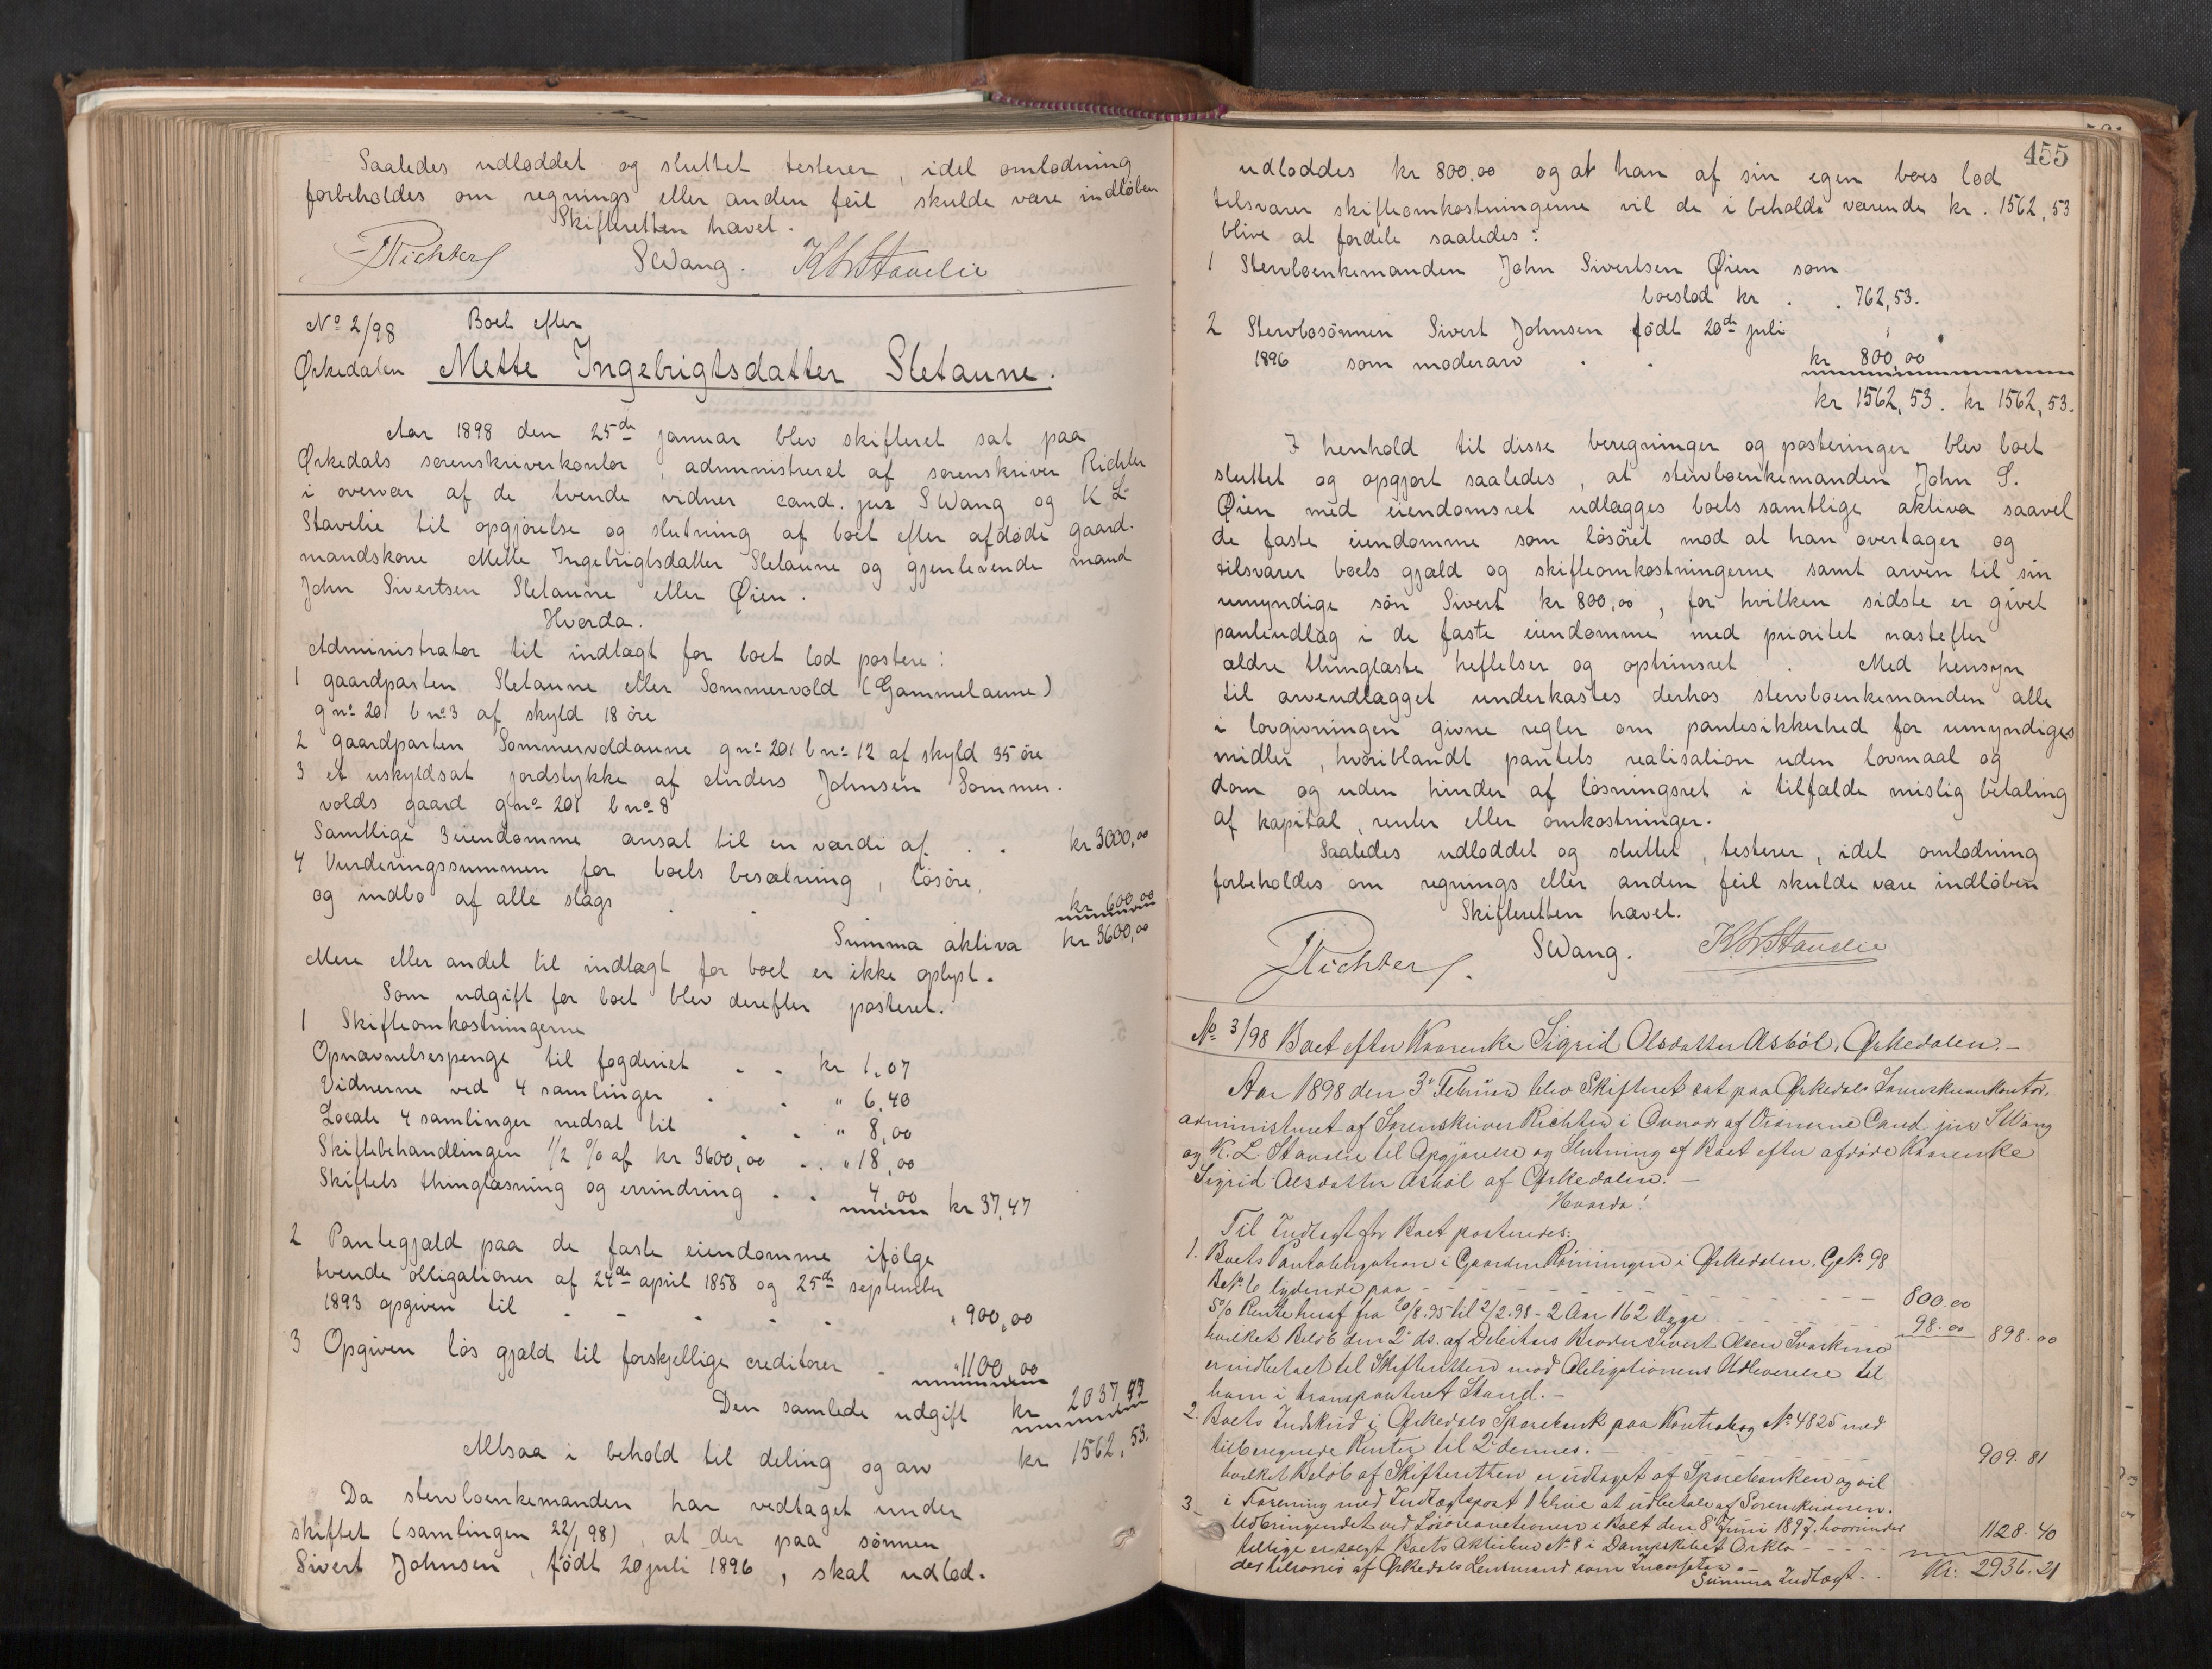 Saaledes udloddet og sluttet testerer, idet omlodning
forbeholdes om regnings eller anden feil skulde være indløben
Skifteretten hævet.
Richter SWang. K L Stavelie
No 2/98 Boet efter
Ørkedalen Mette Ingebrigtsdatter Sletaune.
Aar 1898 den 25de januar blev skifteret sat paa
Ørkedals sorenskriverkontor, administreret af sorenskriver Richter
i overvær af de tvende vidner cand. jur SWang og K L
Stavelie til opgjørelse og slutning af boet efter afdøde gaard-
mandskone Mette Ingebrigtsdatter Sletaune og gjenlevende mand
John Sivertsen Sletaune eller Øien.
Hvorda.
Administrator til indtægt for boet lod postere:
1 gaardparten Sletaune eller Sommervold (Gammelaune)
gno 201 bno 3 af skyld 18 øre
2 gaardparten Sommervoldaune gno 201 bno 12 af skyld 35 øre
3 et uskyldsat jordstykke af Anders Johnsen Sommer-
volds gaard gno 201 bno 8
Samtlige 3 eiendomme ansat til en værdi af . . kr 3000,00
4 Vurderingssummen for boets besætning, løsøre,
og indbo af alle slags . . kr 600,00
Summa aktiva kr 3600,00
Mere eller andet til indtægt for boet er ikke oplyst.
Som udgift for boet blev derefter posteret.
1 Skifteomkostningerne
Opnævnelsespenge til fogderiet . . kr 1,07
Vidnerne ved 4 samlinger . . " 6,40
Locale 4 samlinger nedsat til . . " 8,00
Skiftebehandlingen 1/2 % af kr 3600,00 . . " 18,00
Skiftets thinglæsning og errindring . . 4,00 kr 37,47
2 Pantegjæld paa de faste eiendomme ifølge
tvende obligationer af 24de april 1858 og 25de september
1893 opgiven til - - - - - " 900,00
3 Opgiven løs gjæld til forskjellige creditorer - " 1100,00
Den samlede udgift kr 2037,47
Altsaa i behold til deling og arv kr 1562,53.
Da stervboenkemanden har vedtaget under
skiftet (samlingen 22/1 98), at der paa sønnen
Sivert Johnsen, født 20 juli 1896, skal udlod-
455
udloddes kr 800,00 og at han af sin egen boes lod
tilsvarer skifteomkostningerne vil de i behold værende kr. 1562,53
blive at fordele saaledes:
1 Stervboenkemanden John Sivertsen Øien som
boeslod kr . . 762,53.
2 Stervbosønnen Sivert Johnsen født 20de juli
1896 som mødrearv . . kr 800,00
kr 1562,53. kr 1562,53.
I henhold til disse beregninger og posteringer blev boet
sluttet og opgjort saaledes, at stervboenkemanden John S.
Øien med eiendomsret udlægges boets samtlige aktiva saavel
de faste eiendomme som løsøret mod at han overtager og
tilsvarer boets gjæld og skifteomkostningerne samt arven til sin
umyndige søn Sivert kr 800,00, for hvilken sidste er givet
panteudlæg i de faste eiendomme med prioritet næstefter
ældre thinglæste heftelser og opteinsret. Med hensyn
til arveudlægget underkastes derhos stervboenkemanden alle
i lovgivningen givne regler om pantesikkerhed for umyndiges
midler, hvoriblandt pantets realisation uden lovmaal og
dom og uden hinder af løsningsret i tilfælde mislig betaling
af kapital, renter eller omkostninger.
Saaledes udloddet og sluttet, testerer, idet omlodning
forbeholdes om regnings eller anden feil skulde være indløben
Skifteretten hævet.
Richter. SWang. K. L. Stavelie
No. 3/98 Boet efter Kaarenke Sigrid Olsdatter Asbøl, Ørkedalen.-
Aar 1898 den 3' Februar blev Skifteret sat paa Ørkedals Sorenskriverkontor,
administreret af Sorenskriver Richter i Overvær af Vidnerne Cand jur SWang
og K. L. Stavelie til Opgjørelse og Slutning af Boet efter afdøde Kaarenke
Sigrid Olsdatter Asbøl af Ørkedalen.-
Hvorda!
Til Indtægt for Boet posteredes:
1. Boets Pantobligation i Gaarden Rømingen i Ørkedalen, G.No. 98
B.No. 6 lydende paa - - - 800.00
5% Rente heraf fra 20/8.95 til 2/2.98 - 2 Aar 162 Dage - - 98.00 898.00
hvilket Beløb den 2' ds. af Debitors Broder Sivert Olsen Svorkmo
er indbetalt til Skifteretten mod Obligationens Udleverelse til
ham i transporteret Stand.-
2. Boets Indskud i Ørkedals Sparebank paa Kontrabog No 4825 med
tilberegnede Renter til 2' dennes. - - - 909.81
hvilket Beløb af Skifteretten er udtaget af Sparebanken og vil
i Forening med Indtægtspost 1 blive at udbetale af Sorenskriveren.
3. Udbringendet ved Løsøreauctionen i Boet den 8' Juni 1897, hvorunder
tillige er solgt Boets Aktie No. 8 i Dampskibet Orkla - - - 1128.40
der tilsvares af Ørkedals Lensmand som Incassator.-
Summa Indtægt.. Kr. 2936.21